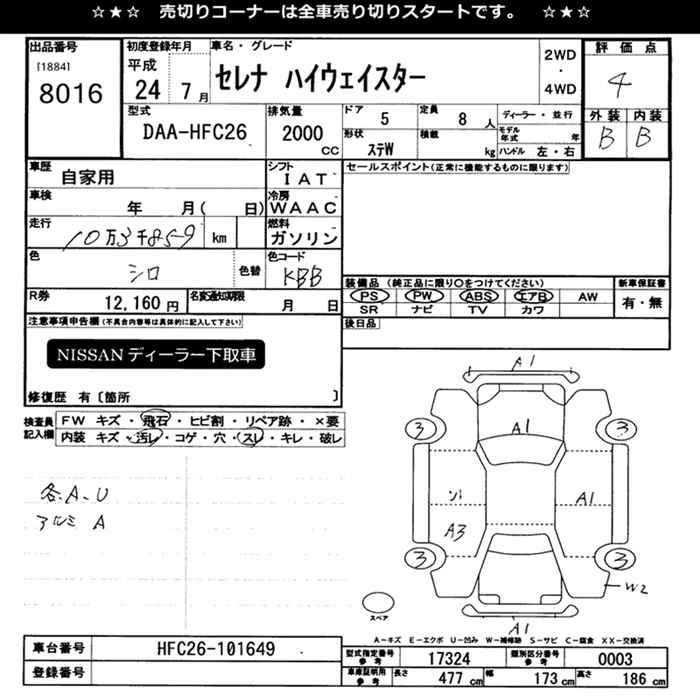 ☆★☆　売切りコーナーは全車売り切りスタートです。　☆★☆
出品番号
[1884]
8016
初度登録年月
平成
24 7月
車名・グレード
セレナ ハイウェイスター
2WD
・
4WD
評価点
4
外装 内装
B B
型式
DAA-HFC26
排気量
2000
cc
ドア 5
形状 ステW
定員 8 人
積載 kg
ディーラー・並行
モデル年式 年
ハンドル 左・右
車歴 自家用
シフト IAT
車検 年 月( 日)
冷房 WAAC
走行 10万3千859 km
燃料 ガソリン
色 シロ
色替
色コード KBB
R券 12,160 円
名変通知期限 月 日
セールスポイント(正常に機能するものに限ります)
装備品 (純正品に限り○をつけてください)
PS PW ABS エアB AW
SR ナビ TV カワ
新車保証書
有・無
後日品
注意事項申告欄(不具合内容等は具体的に記入して下さい)
NISSANディーラー下取車
修復歴 有〔箇所 〕
検査員記入欄
FW キズ・飛石・ヒビ割・リペア跡・×要
内装 キズ・汚レ・コゲ・穴・スレ・キレ・破レ
各A、U
アルミ A
A1
A1
3 3
A3
A1
3 3
W2
A1
スペア
A－キズ E－エクボ U－凹み W－補修跡 S－サビ C－腐食 XX－交換済
車台番号 HFC26-101649
登録番号
型式指定番号 参考 17324
類別区分番号 参考 0003
車庫証明用 参考 長さ 477 cm 幅 173 cm 高さ 186 cm